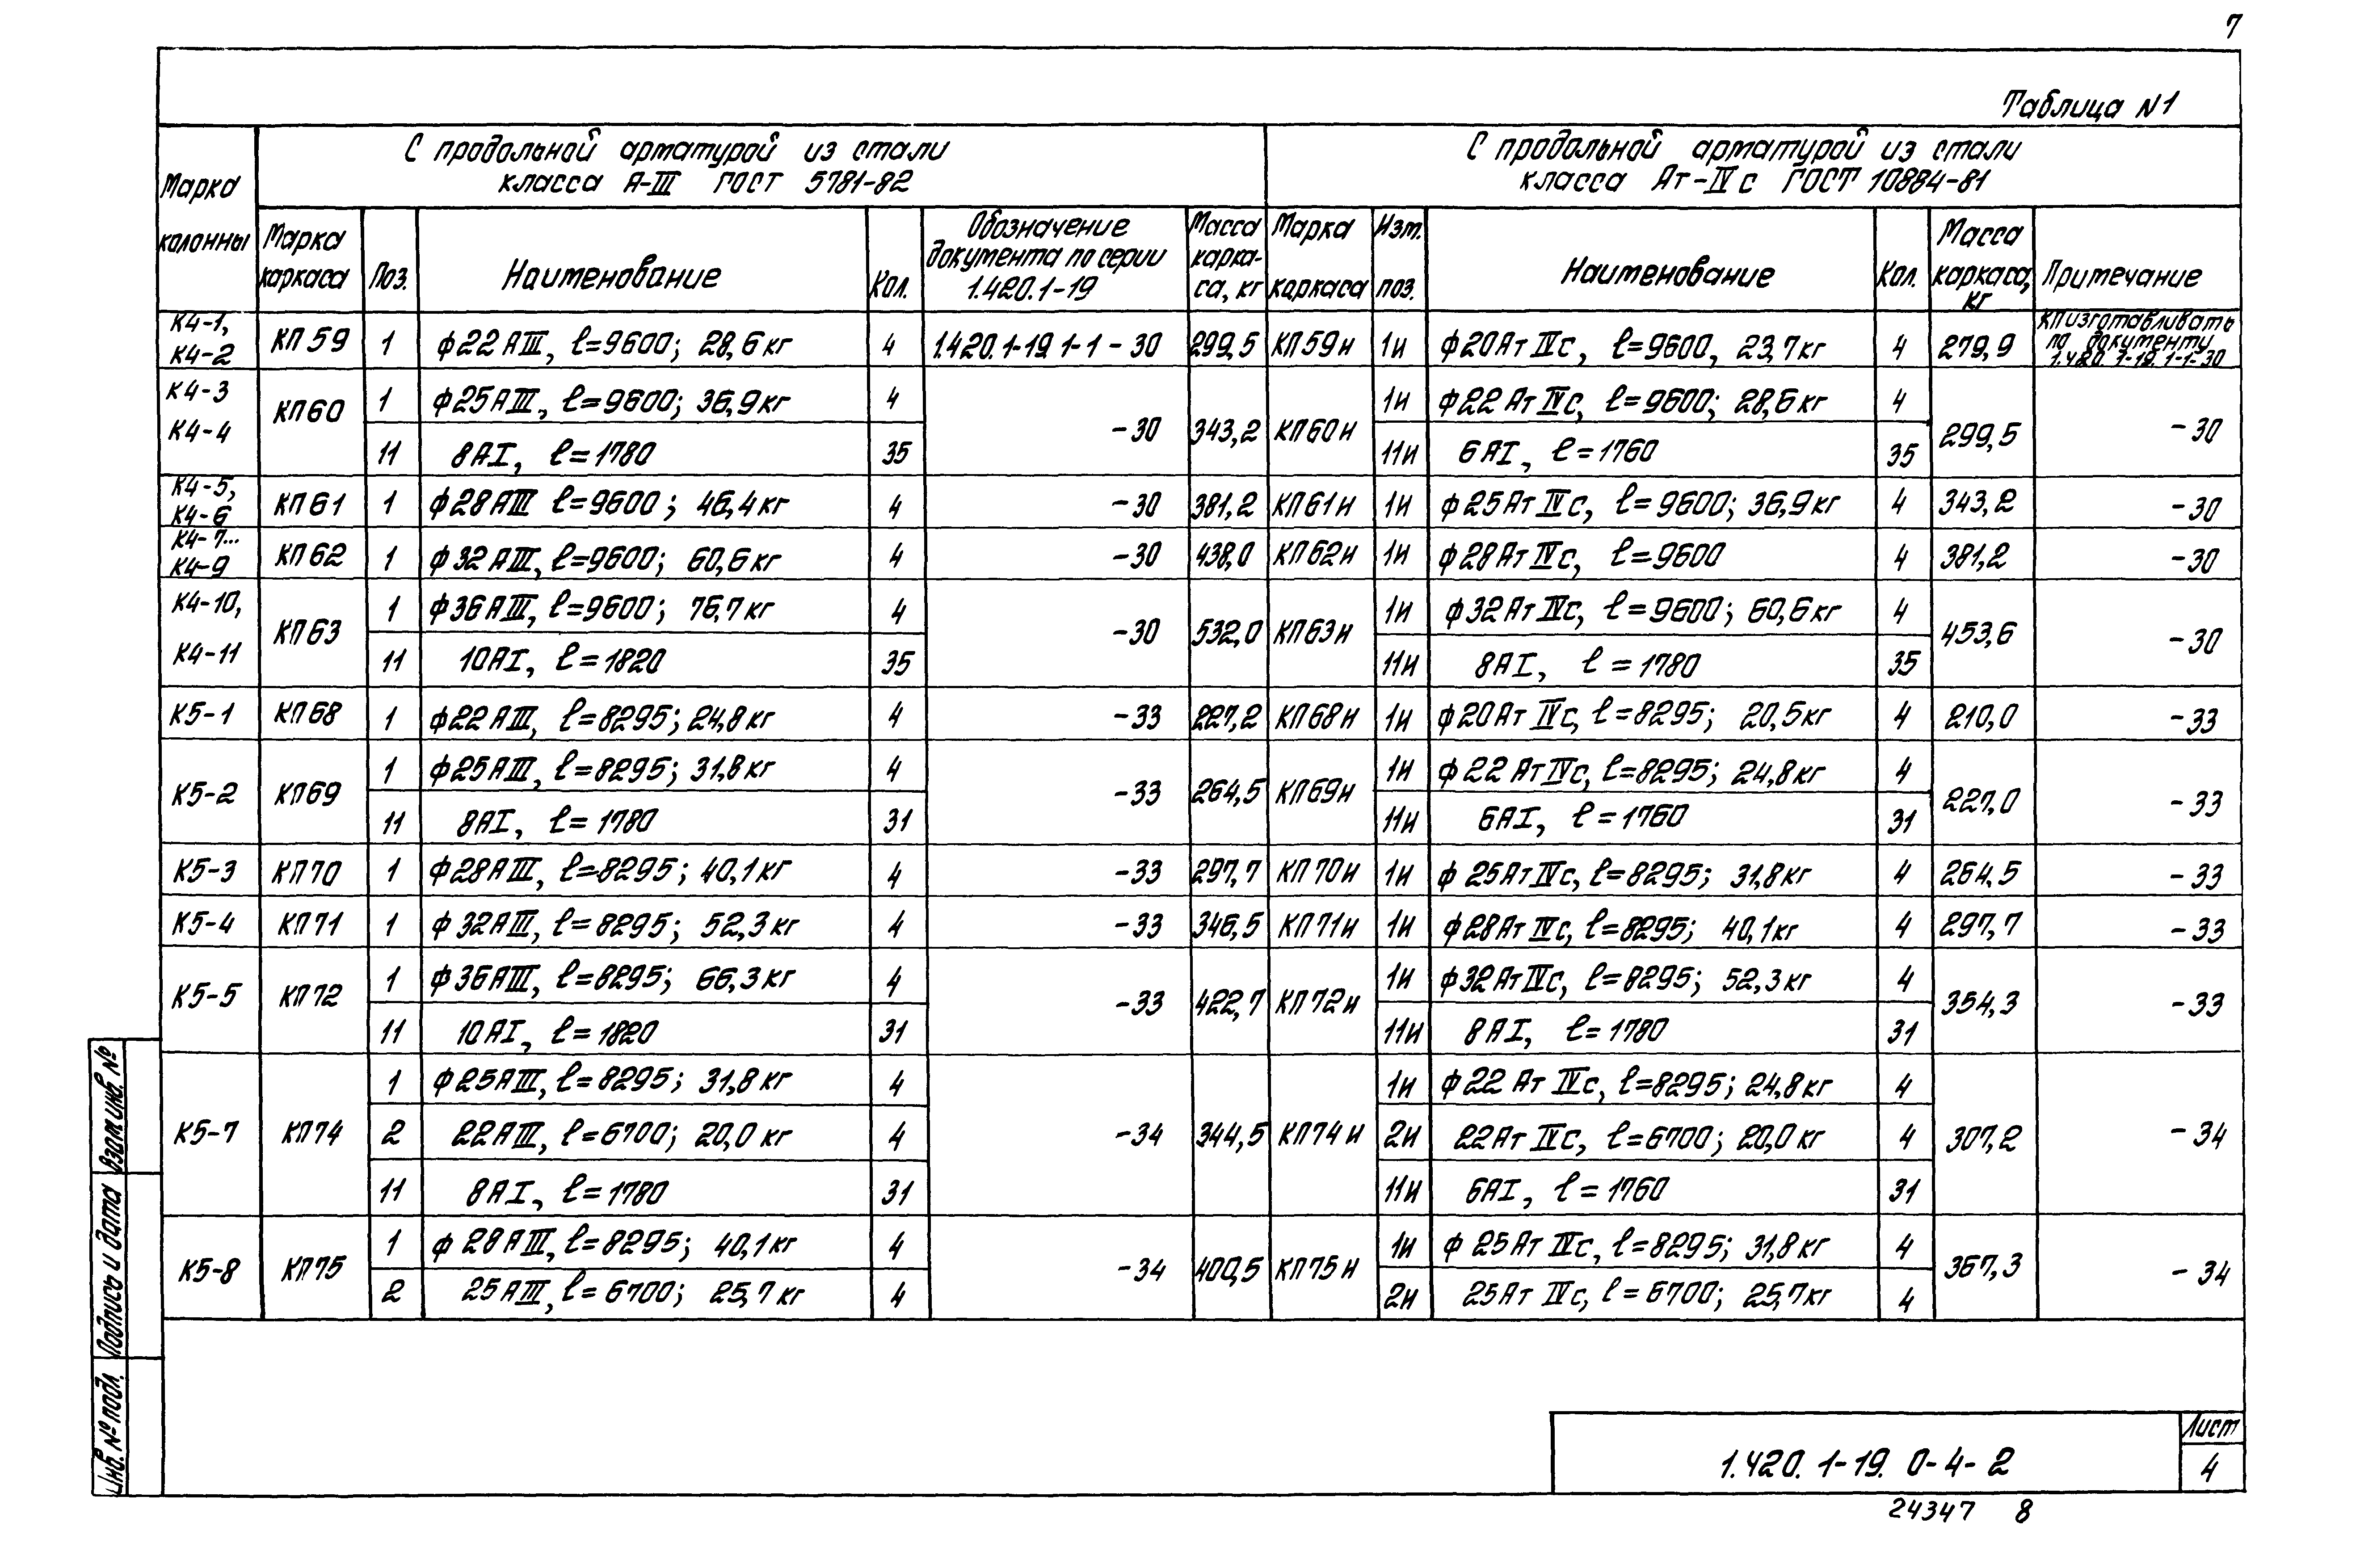 7
Таблица N1
Марка колонны
С продольной арматурой из стали
класса А-III ГОСТ 5781-82
С продольной арматурой из стали
класса Ат-IVс ГОСТ 10884-81
Марка каркаса
Поз.
Наименование
Кол.
Обозначение документа по серии 1.420.1-19
Масса карка-са, кг
Марка каркаса
Изм. поз.
Наименование
Кол.
Масса каркаса, кг
Примечание
К4-1, К4-2 КП59 1 ф22АIII, ℓ=9600; 28,6кг 4 1.420.1-19.1-1-30 299,5 КП59и 1и ф20АтIVс, ℓ=9600, 23,7кг 4 279,9 КП изготавливать по документу 1.420.1-19.1-1-30
К4-3 К4-4 КП60 1 ф25АIII, ℓ=9600; 36,9кг 4 -30 343,2 КП60и 1и ф22АтIVс, ℓ=9600; 28,6кг 4 299,5 -30
11 8АI, ℓ=1780 35 11и 6АI, ℓ=1760 35
К4-5, К4-6 КП61 1 ф28АIII ℓ=9600; 46,4кг 4 -30 381,2 КП61и 1и ф25АтIVс, ℓ=9600; 36,9кг 4 343,2 -30
К4-7... К4-9 КП62 1 ф32АIII, ℓ=9600; 60,6кг 4 -30 438,0 КП62и 1и ф28АтIVс, ℓ=9600 4 381,2 -30
К4-10, К4-11 КП63 1 ф36АIII, ℓ=9600; 76,7кг 4 -30 532,0 КП63и 1и ф32АтIVс, ℓ=9600; 60,6кг 4 453,6 -30
11 10АI, ℓ=1820 35 11и 8АI, ℓ=1780 35
К5-1 КП68 1 ф22АIII, ℓ=8295; 24,8кг 4 -33 227,2 КП68и 1и ф20АтIVс, ℓ=8295; 20,5кг 4 210,0 -33
К5-2 КП69 1 ф25АIII, ℓ=8295; 31,8кг 4 -33 264,5 КП69и 1и ф22АтIVс, ℓ=8295; 24,8кг 4 227,0 -33
11 8АI, ℓ=1780 31 11и 6АI, ℓ=1760 31
К5-3 КП70 1 ф28АIII, ℓ=8295; 40,1кг 4 -33 297,7 КП70и 1и ф25АтIVс, ℓ=8295; 31,8кг 4 264,5 -33
К5-4 КП71 1 ф32АIII, ℓ=8295; 52,3кг 4 -33 346,5 КП71и 1и ф28АтIVс, ℓ=8295; 40,1кг 4 297,7 -33
К5-5 КП72 1 ф36АIII, ℓ=8295; 66,3кг 4 -33 422,7 КП72и 1и ф32АтIVс, ℓ=8295; 52,3кг 4 354,3 -33
11 10АI, ℓ=1820 31 11и 8АI, ℓ=1780 31
К5-7 КП74 1 ф25АIII, ℓ=8295; 31,8кг 4 -34 344,5 КП74и 1и ф22АтIVс, ℓ=8295; 24,8кг 4 307,2 -34
2 22АIII, ℓ=6700; 20,0кг 4 2и 22АтIVс, ℓ=6700; 20,0кг 4
11 8АI, ℓ=1780 31 11и 6АI, ℓ=1760 31
К5-8 КП75 1 ф28АIII, ℓ=8295; 40,1кг 4 -34 400,5 КП75и 1и ф25АтIVс, ℓ=8295; 31,8кг 4 367,3 -34
2 25АIII, ℓ=6700; 25,7кг 4 2и 25АтIVс, ℓ=6700; 25,7кг 4
Взам инв. №
Подпись и дата
Инв. № подл.
1.420.1-19. 0-4-2
Лист
4
24347 8